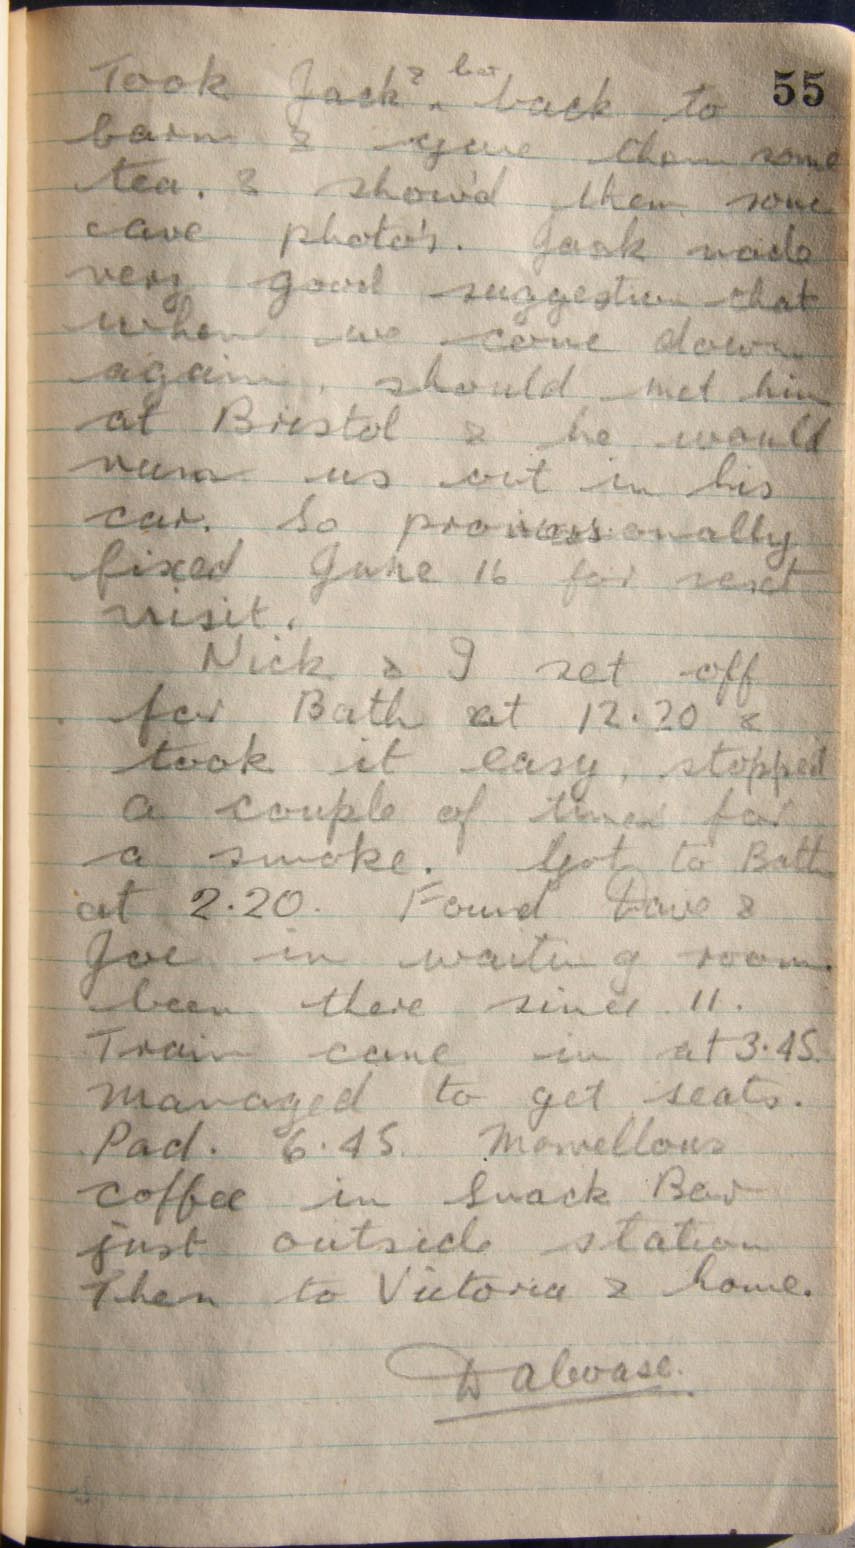 55
Took Jack & ^ back to
barn & gave them some
tea. & show'd them some
cave photo's. Jack made
very good suggestion that
when we come down
again, should met him
at Bristol & he would
run us out in his
car. So provissionally
fixed June 16 for next
visit.
Nick & I set off
for Bath at 12.20 &
took it easy, stopped
a couple of times for
a smoke. Got to Bath
at 2.20. Found Dave &
Joe in waiting room
been there since 11.
Train came in at 3.45.
Managed to get seats.
Pad. 6.45. Marvellous
coffee in Snack Bar
just outside station
Then to Victoria & home.